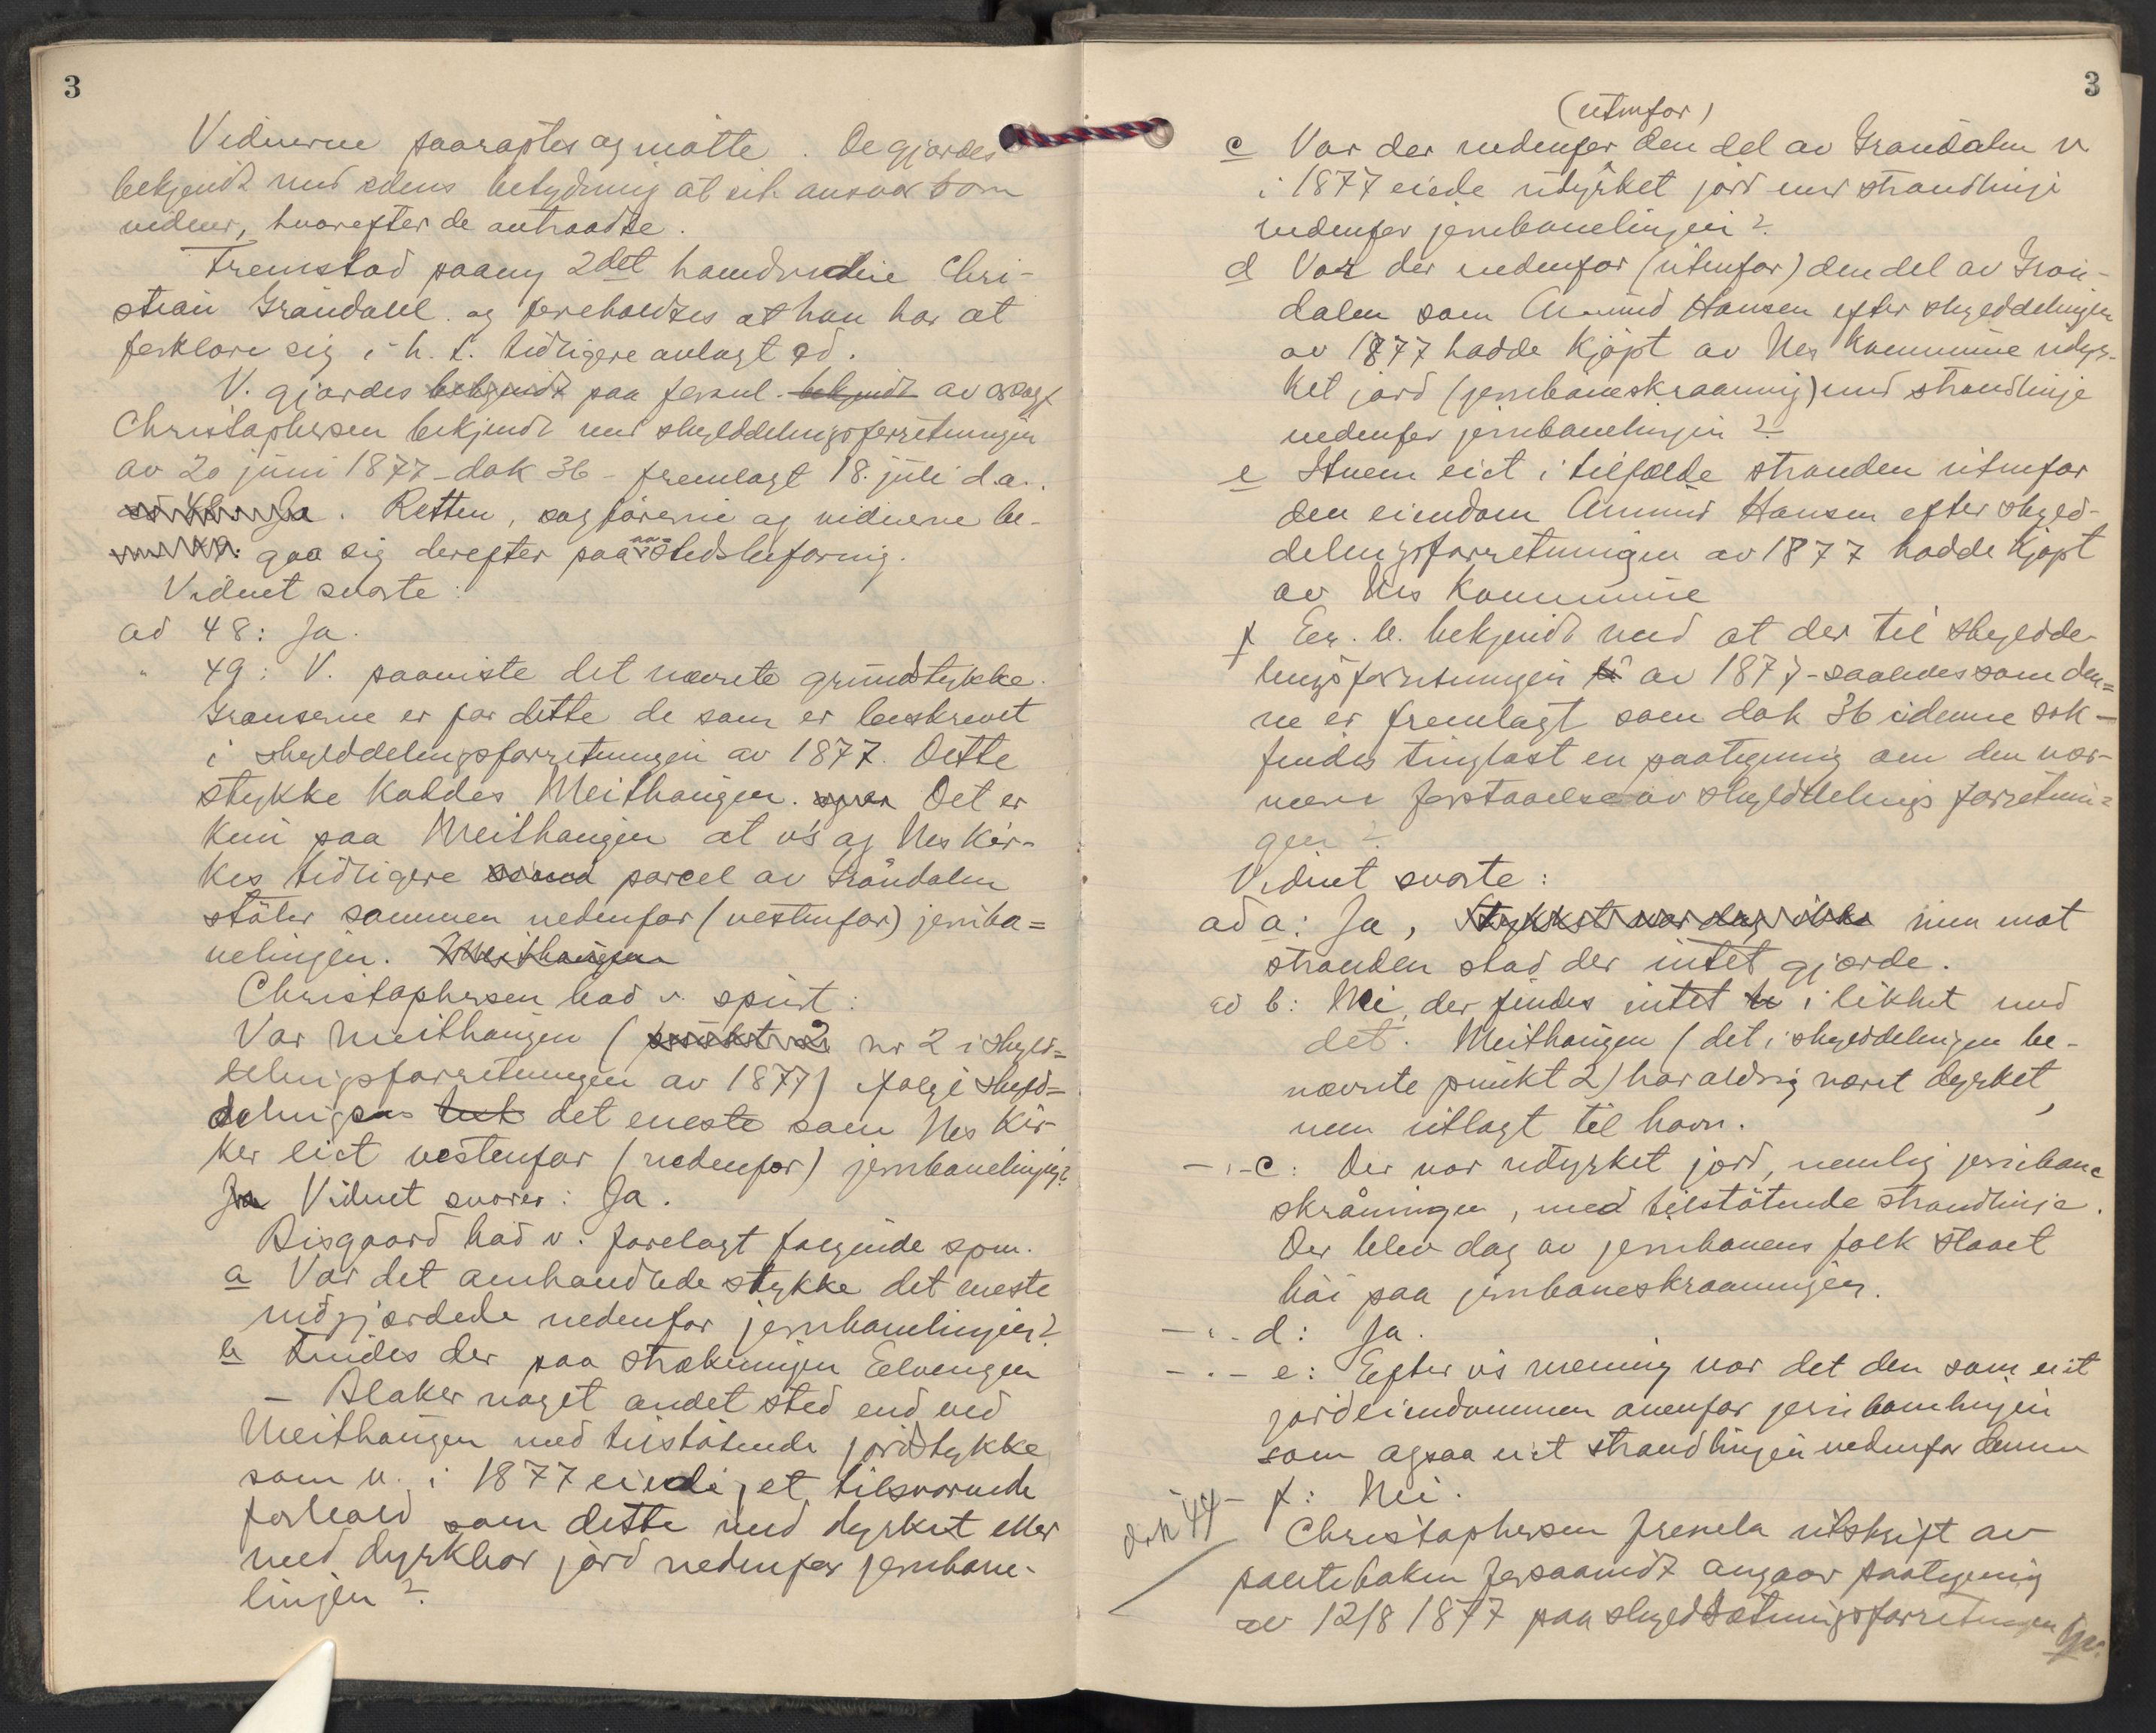 3
Vidnerne paaraptes og møtte. De gjordes
bekjendt med edens betydning at sit ansvar som
vidner, hvorefter de antraadte.
Fremstod paany 2det hovedvidne Chri-
stian Grøndahl og foreholdtes at han har at
forklare sig i h. t. tidligere avlagt ed.
V. gjordes bekjendt paa foranl. bekjendt av o.r.sagf.
Christophersen bekjendt med skylddelingsforretningen
av 20 juni 1877 - dok 36 - fremlagt 18. juli d.a..
Ja. Retten, sagførerne og vidnerne be-
gaa sig derefter paa aastedsbefaring.
Vidnet svarte:
ad 48: Ja.
" 49: V. paaviste det nævnte grundstykke.
Grænserne er for dette de som er beskrevet
i skylddelingsforretningen av 1877. Dette
stykke kaldes Meithaugen. Det er
kun paa Meithaugen at v's og Nes Kir-
kes tidligere parcel av Grøndalen
støter sammen nedenfor (vestenfor) jernba=
nelinjen. Meithaugen
Christophersen bad v. spurt:
Var Meithaugen (punkt 2 nr 2 i skyld=
delingsforretningen av 1877) ifølge skyld=
delingens det eneste som Nes Kir-
ker eiet vestenfor (nedenfor) jernbanelinjen?
Ja Vidnet svarer: Ja.
Bisgaard bad v. forelagt følgende spm.
a Var det omhandlede stykke det eneste
indgjærdede nedenfor jernbanelinjen?
b Findes der paa strækningen Eelvengen
- Blaker noget andet sted end ved
Meithaugen med tilstøtende jordstykke
som v. i 1877 eiede, et tilsvarende
forhold som dette med dyrket eller
med dyrkbar jord nedenfor jernbane-
linjen?
3
(utenfor)
c Var der nedenfor den del av Grøndalen v
i 1877 eiede udyrket jord med strandlinje
nedenfor jernbanelinjen?
d Var der nedenfor (utenfor) den del av Grøn-
dalen som Amund Hansen efter skylddelingen
av 1877 hadde kjøpt av Nes Kommune udyr-
ket jord (jernbaneskraaning) med strandlinje
nedenfor jernbanelinjen?
e Hvem eiet i tilfælde stranden utenfor
den eiendom Amund Hansen efter skyld-
delingsforretningen av 1877 hadde kjøpt
av Nes Kommune
f Er v. bekjendt med at der til skyldde-
lingsforretningen av 1877 - saaledes som den=
ne er fremlagt som dok 36 i denne sak -
findes tinglæst en paategning om den nær-
mere forstaaelse av skylddelings forretnin=
gen?
Vidnet svarte:
ad a: Ja, Stykket var dog ikke men mot
stranden stod der intet gjerde.
ad b: Nei, der findes intet i likhet med
det. Meithaugen (det i skylddelingen be-
nævnte punkt 2) har aldrig været dyrket,
men utlagt til havn.
-"- c: Der var udyrket jord, nemlig jernbane
skråningen, med tilstøtende strandlinje.
Der blev dog av jernbanens folk slaaet
høi paa jernbaneskraaningen.
-"- d: Ja.
-"- e: Efter v's mening var det den som eiet
jordeiendommen ovenfor jernbanelinjen
som ogsaa eiet strandlinjen nedenfor denne
- f: Nei.
dok 44
Christophersen fremla utskrift av
panteboken forsaavidt angaar paategning
av 12/8 1877 paa skyldsætningsforretningen